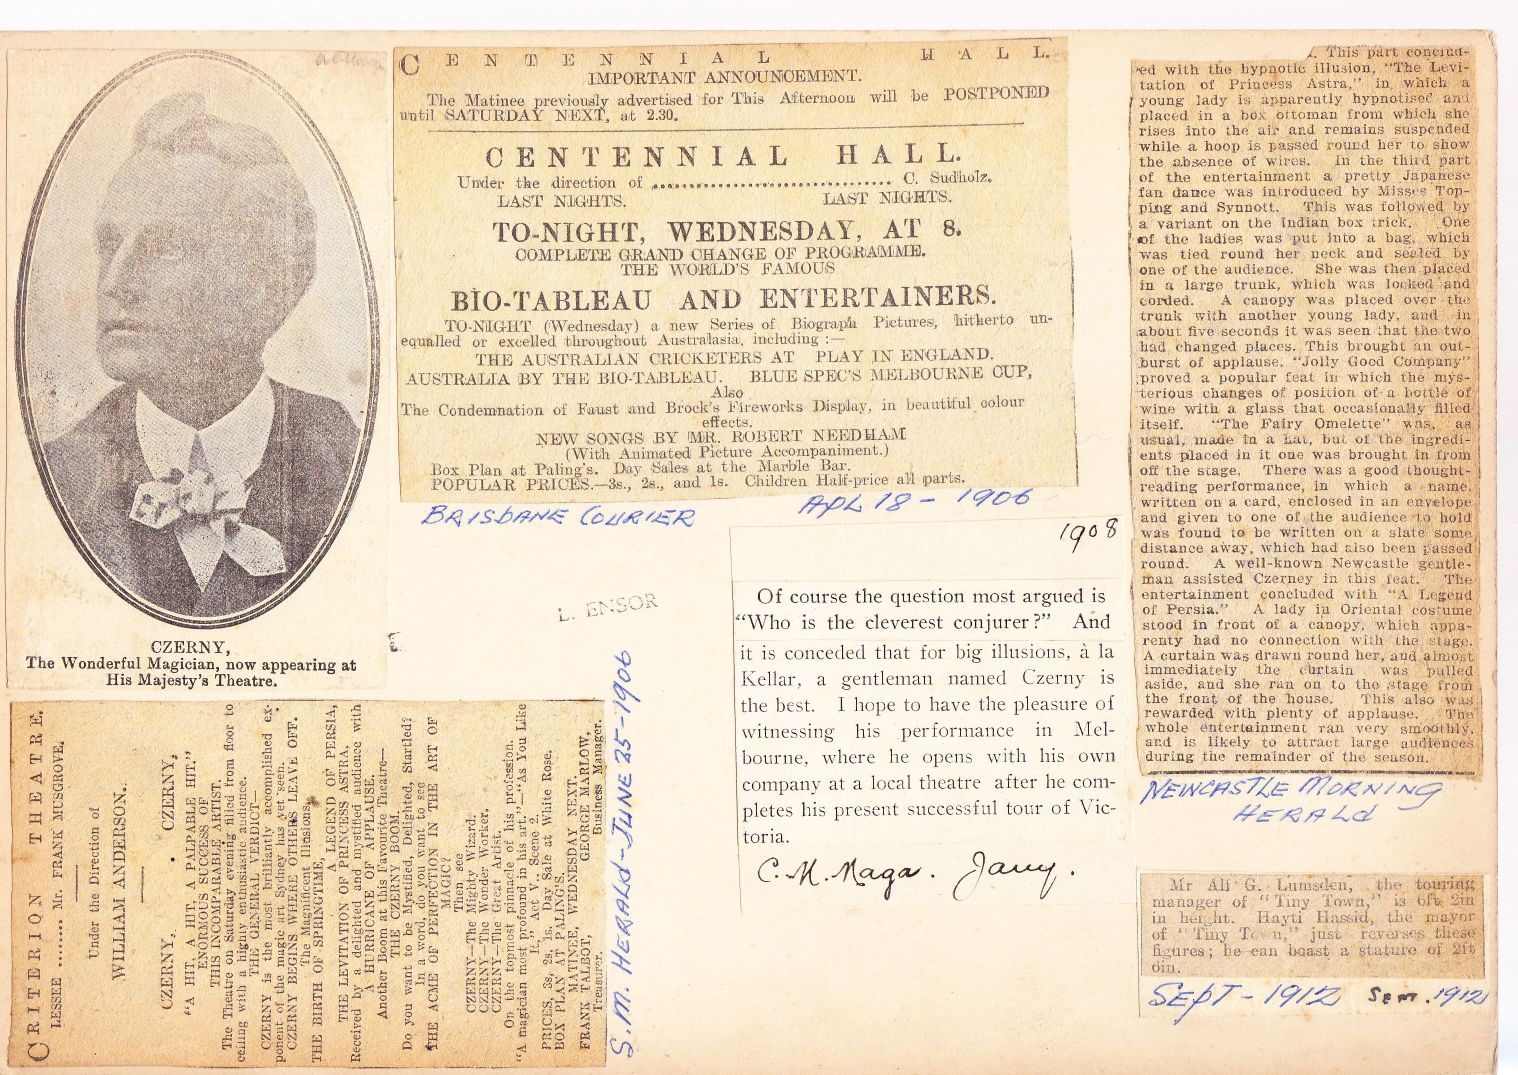 CZERNY,
The Wonderful Magician, now appearing at
His Majesty's Theatre.
CENTENNIAL HALL.
IMPORTANT ANNOUNCEMENT.
The Matinee previously advertised for This Afternoon will be POSTPONED
until SATURDAY NEXT, at 2.30.
CENTENNIAL HALL.
Under the direction of .................................. C. Sudholz.
LAST NIGHTS. LAST NIGHTS.
TO-NIGHT, WEDNESDAY, AT 8.
COMPLETE GRAND CHANGE OF PROGRAMME.
THE WORLD'S FAMOUS
BIO-TABLEAU AND ENTERTAINERS.
TO-NIGHT (Wednesday) a new Series of Biograph Pictures, hitherto un-
equalled or excelled throughout Australasia, including :—
THE AUSTRALIAN CRICKETERS AT PLAY IN ENGLAND.
AUSTRALIA BY THE BIO-TABLEAU. BLUE SPEC'S MELBOURNE CUP,
Also
The Condemnation of Faust and Brock's Fireworks Display, in beautiful colour
effects.
NEW SONGS BY MR. ROBERT NEEDHAM
(With Animated Picture Accompaniment.)
Box Plan at Paling's. Day Sales at the Marble Bar.
POPULAR PRICES.—3s., 2s., and 1s. Children Half-price all parts.
BRISBANE COURIER APL 18 - 1906
L. ENSOR
CRITERION THEATRE.
LESSEE ........ Mr. FRANK MUSGROVE.
Under the Direction of
WILLIAM ANDERSON.
CZERNY, . CZERNY,
"A HIT, A HIT, A PALPABLE HIT."
ENORMOUS SUCCESS OF
THIS INCOMPARABLE ARTIST.
The Theatre on Saturday evening filled from floor to
ceiling with a highly enthusiastic audience.
THE GENERAL VERDICT—
CZERNY is the most brilliantly accomplished ex-
ponent of the magic art Sydney has yet seen.
CZERNY BEGINS WHERE OTHERS LEAVE OFF.
The Magnificent Illusions,
THE BIRTH OF SPRINGTIME,
A LEGEND OF PERSIA,
THE LEVITATION OF PRINCESS ASTRA.
Received by a delighted and mystified audience with
A HURRICANE OF APPLAUSE.
Another Boom at this Favourite Theatre—
THE CZERNY BOOM.
Do you want to be Mystified, Delighted, Startled?
In a word, do you want to see
THE ACME OF PERFECTION IN THE ART OF
MAGIC?
Then see
CZERNY—The Mighty Wizard.
CZERNY—The Wonder Worker.
CZERNY—The Great Artist.
On the topmost pinnacle of his profession.
"A magician most profound in his art."—"As You Like
It," Act V., Scene 2.
PRICES, 3s, 2s, 1s. Day Sale at White Rose.
BOX PLAN AT PALING'S.
MATINEE, WEDNESDAY NEXT.
FRANK TALBOT, GEORGE MARLOW,
Treasurer. Business Manager.
S. M. HERALD - JUNE 25 - 1906
1908
Of course the question most argued is
"Who is the cleverest conjurer?" And
it is conceded that for big illusions, à la
Kellar, a gentleman named Czerny is
the best. I hope to have the pleasure of
witnessing his performance in Mel-
bourne, where he opens with his own
company at a local theatre after he com-
pletes his present successful tour of Vic-
toria.
C. M. Maga. Jany.
This part conclud-
ed with the hypnotic illusion, "The Levi-
tation of Princess Astra," in which a
young lady is apparently hypnotised and
placed in a box ottoman from which she
rises into the air and remains suspended
while a hoop is passed round her to show
the absence of wires. In the third part
of the entertainment a pretty Japanese
fan dance was introduced by Misses Top-
ping and Synnott. This was followed by
a variant on the Indian box trick. One
of the ladies was put into a bag, which
was tied round her neck and sealed by
one of the audience. She was then placed
in a large trunk, which was locked and
corded. A canopy was placed over the
trunk with another young lady, and in
about five seconds it was seen that the two
had changed places. This brought an out-
burst of applause. "Jolly Good Company"
proved a popular feat in which the mys-
terious changes of position of a bottle of
wine with a glass that occasionally filled
itself. "The Fairy Omelette" was, as
usual, made in a hat, but of the ingredi-
ents placed in it one was brought in from
off the stage. There was a good thought-
reading performance, in which a name,
written on a card, enclosed in an envelope
and given to one of the audience to hold
was found to be written on a slate some
distance away, which had also been passed
round. A well-known Newcastle gentle-
man assisted Czerney in this feat. The
entertainment concluded with "A Legend
of Persia." A lady in Oriental costume
stood in front of a canopy, which appa-
renty had no connection with the stage.
A curtain was drawn round her, and almost
immediately the curtain was pulled
aside, and she ran on to the stage from
the front of the house. This also was
rewarded with plenty of applause. The
whole entertainment ran very smoothly,
and is likely to attract large audiences
during the remainder of the season.
NEWCASTLE MORNING
HERALD
Mr Alf G. Lumsden, the touring
manager of "Tiny Town," is 6ft 2in
in height. Hayti Hassid, the mayor
of "Tiny Town," just reverses these
figures; he can boast a stature of 2ft
6in.
SEPT - 1912 SEPT. 1912